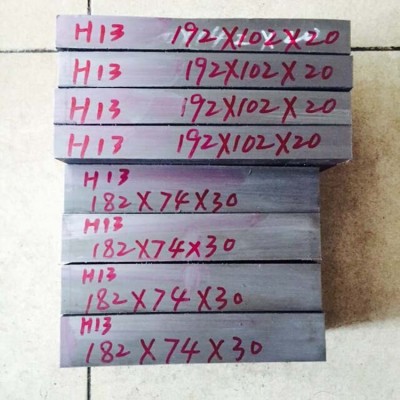 H13 192X102X20
H13 192X102X20
H13 192X102X20
H13 192X102X20
H13
182X74X30
H13
182X74X30
H13
182X74X30
H13
182X74X30